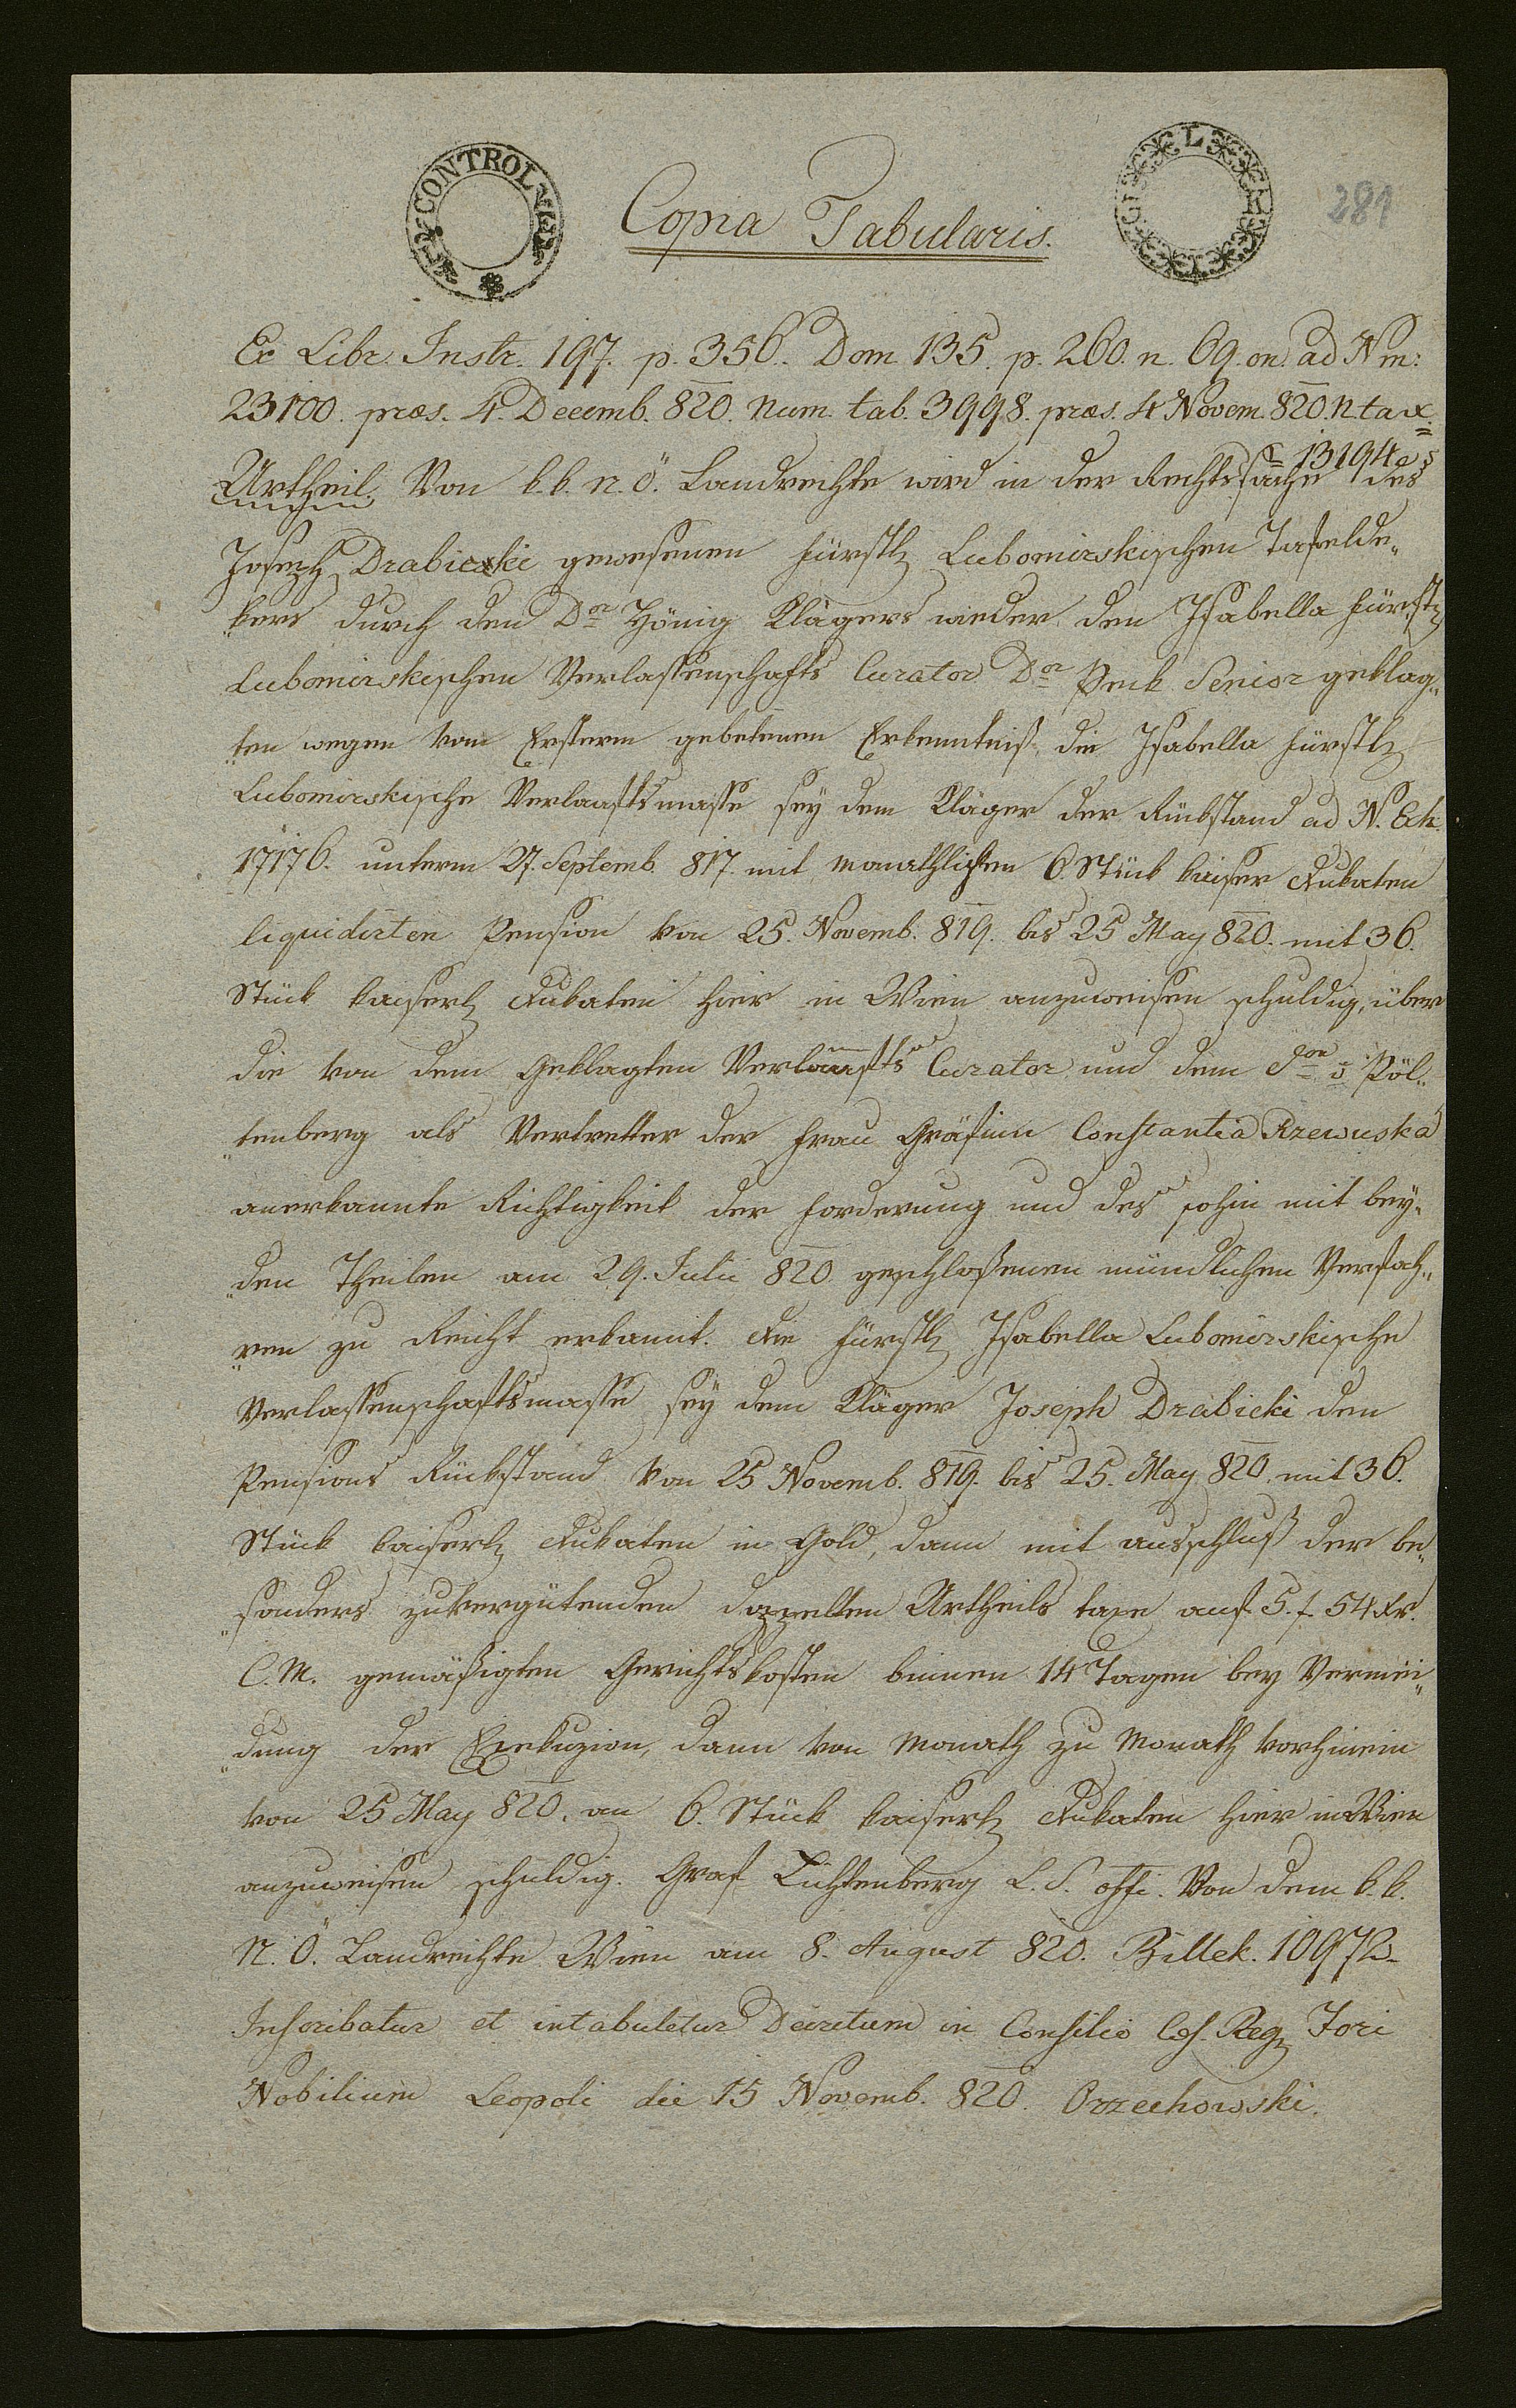 CONTROL
L
281
Copia Tabularis.
Ex Libr. Instr. 197. p. 356. Dom. 135. p. 260. n. 69. on. ad Nm:
23100. præs. 4. Decemb. 820. Num. tab. 3998. præs. 4 Novem. 820. N. tax.
13194
Urtheil. Von k. k. n. ö. Landrechte wird in der Rechtssache des
Joseph Drabicki gewesenen fürstl Lubomirskischen Tafelde„
„kers durch den Dor Hönig Klägers wieder den Isabella fürstl
Lubomirskischen Verlassenschafts Curator Dor Peck Senior geklag„
„ten wegen vom Ersterm gebetenen Erkenntniß, die Isabella fürstl
Lubomirskische Verlaaftsmasse sey dem Kläger der Rükstand ad N. Exh.
17176. unterm 27. Septemb. 817. mit monathlichen 6. Stük kaiser Dukaten
liquidirten Pension von 25. Novemb. 819. bis 25 May 820. mit 36.
Stük kaiserl Dukaten hier in Wien anzuweisen schuldig, über
die von dem Geklagten Verlaafts Curator und dem Dor v Pöl„
„tenberg als Vertretter der Frau Gräfinn Constantia Rzewuska
anerkannte Richtigkeit der Forderung und des sohin mit bey„
„den Theilen am 29. Julii 820. geschloßenen mündlichen Verfah„
„ren zu Recht erkannt. Die fürstl Isabella Lubomirskische
Verlassenschaftsmasse sey dem Kläger Joseph Drabicki den
Pensions Rükstand von 25 Novemb. 819. bis 25. May 820. mit 36.
Stük kaiserl Dukaten in Gold, dann mit ausschluß der be„
„sonders zuvergütenden doppelten Urtheils taxe auf 5. f. 54 xr.
C. M. gemäßigten Gerichtskosten binnen 14 Tagen bey Vermei„
„dung der Exekuzion, dann von Monath zu Monath vorhinein
von 25 May 820. an 6. Stük kaiserl Dukaten hier in Wien
anzuweisen schuldig. Graf Lichtenberg L. S. Von dem k. k.
N. Ö. Landrechte Wien am 8. August 820. Billek. 10972.
Inscribatur et intabuletur Decretum in Consilio Cæs. Reg. Fori
Nobilium Leopoli die 15 Novemb. 820. Orzechowski.